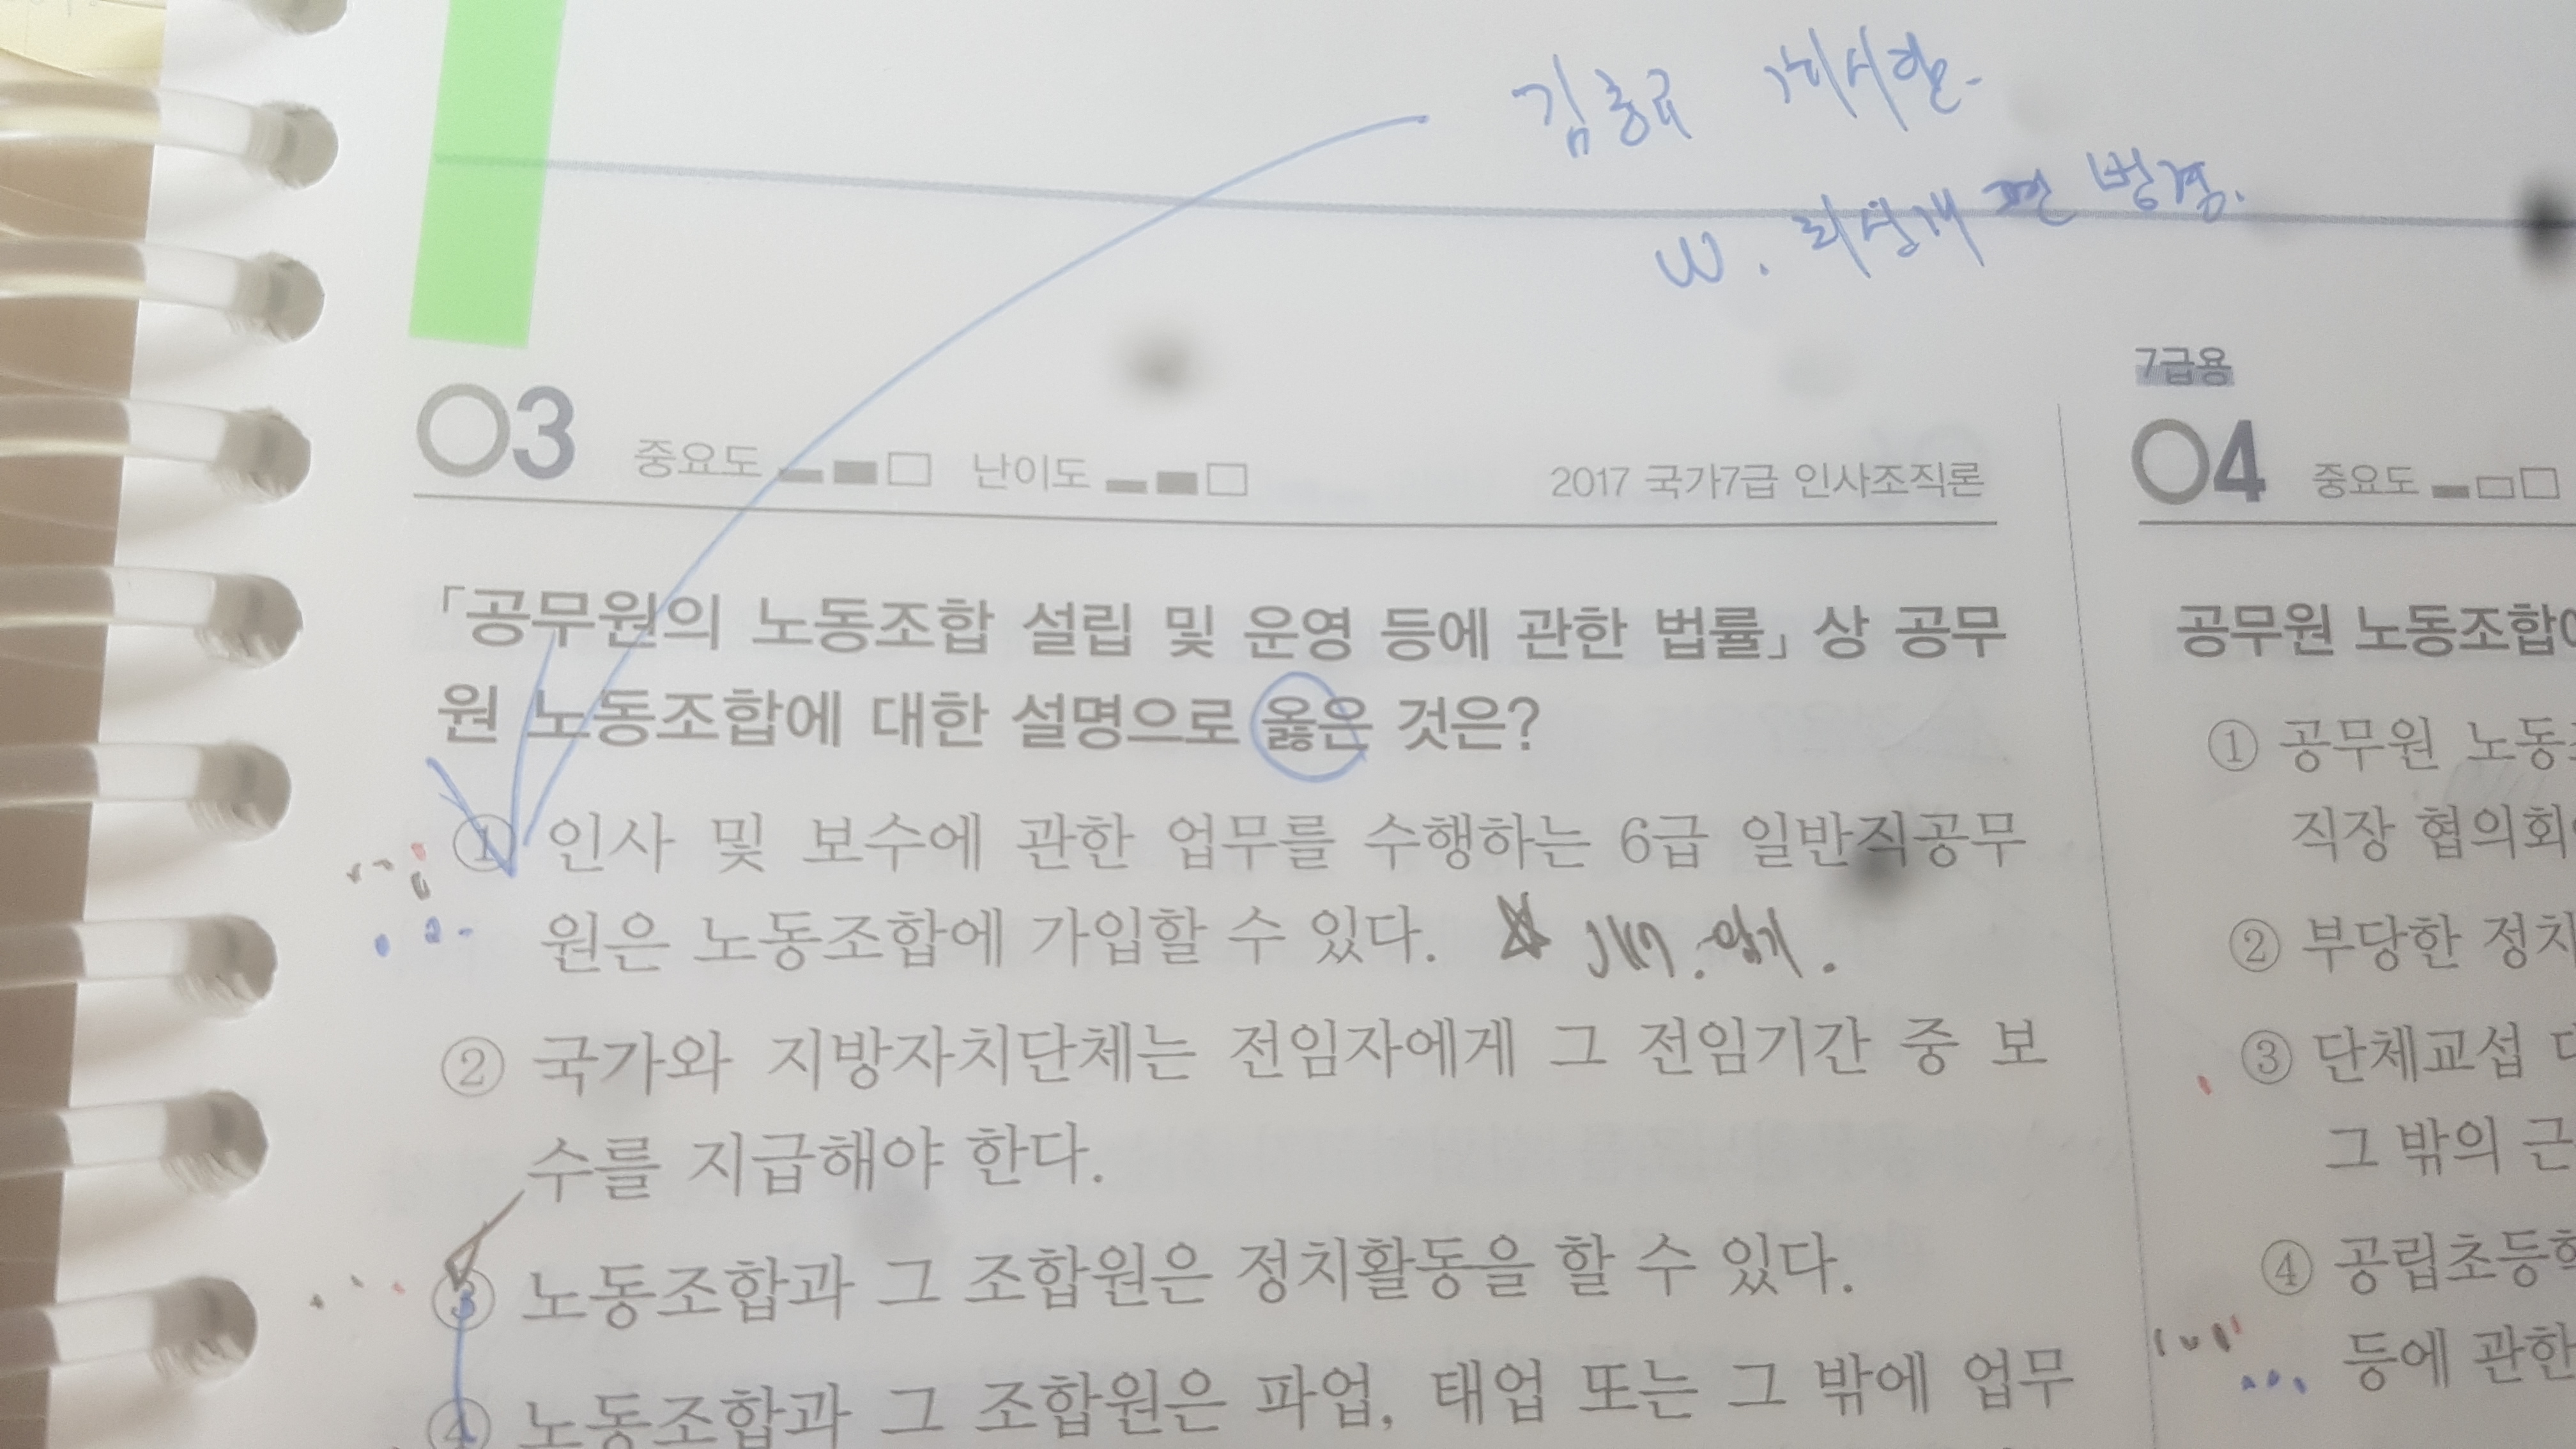 김중규
7급용
03 중요도 난이도 2017 국가7급 인사조직론
「공무원의 노동조합 설립 및 운영 등에 관한 법률」 상 공무
원 노동조합에 대한 설명으로 옳은 것은?
① 인사 및 보수에 관한 업무를 수행하는 6급 일반직공무
원은 노동조합에 가입할 수 있다.
② 국가와 지방자치단체는 전임자에게 그 전임기간 중 보
수를 지급해야 한다.
③ 노동조합과 그 조합원은 정치활동을 할 수 있다.
④ 노동조합과 그 조합원은 파업, 태업 또는 그 밖에 업무
04 중요도
공무원 노동조합에
① 공무원 노동조
직장 협의회
② 부당한 정치
③ 단체교섭 대
그 밖의 근
④ 공립초등학
등에 관한